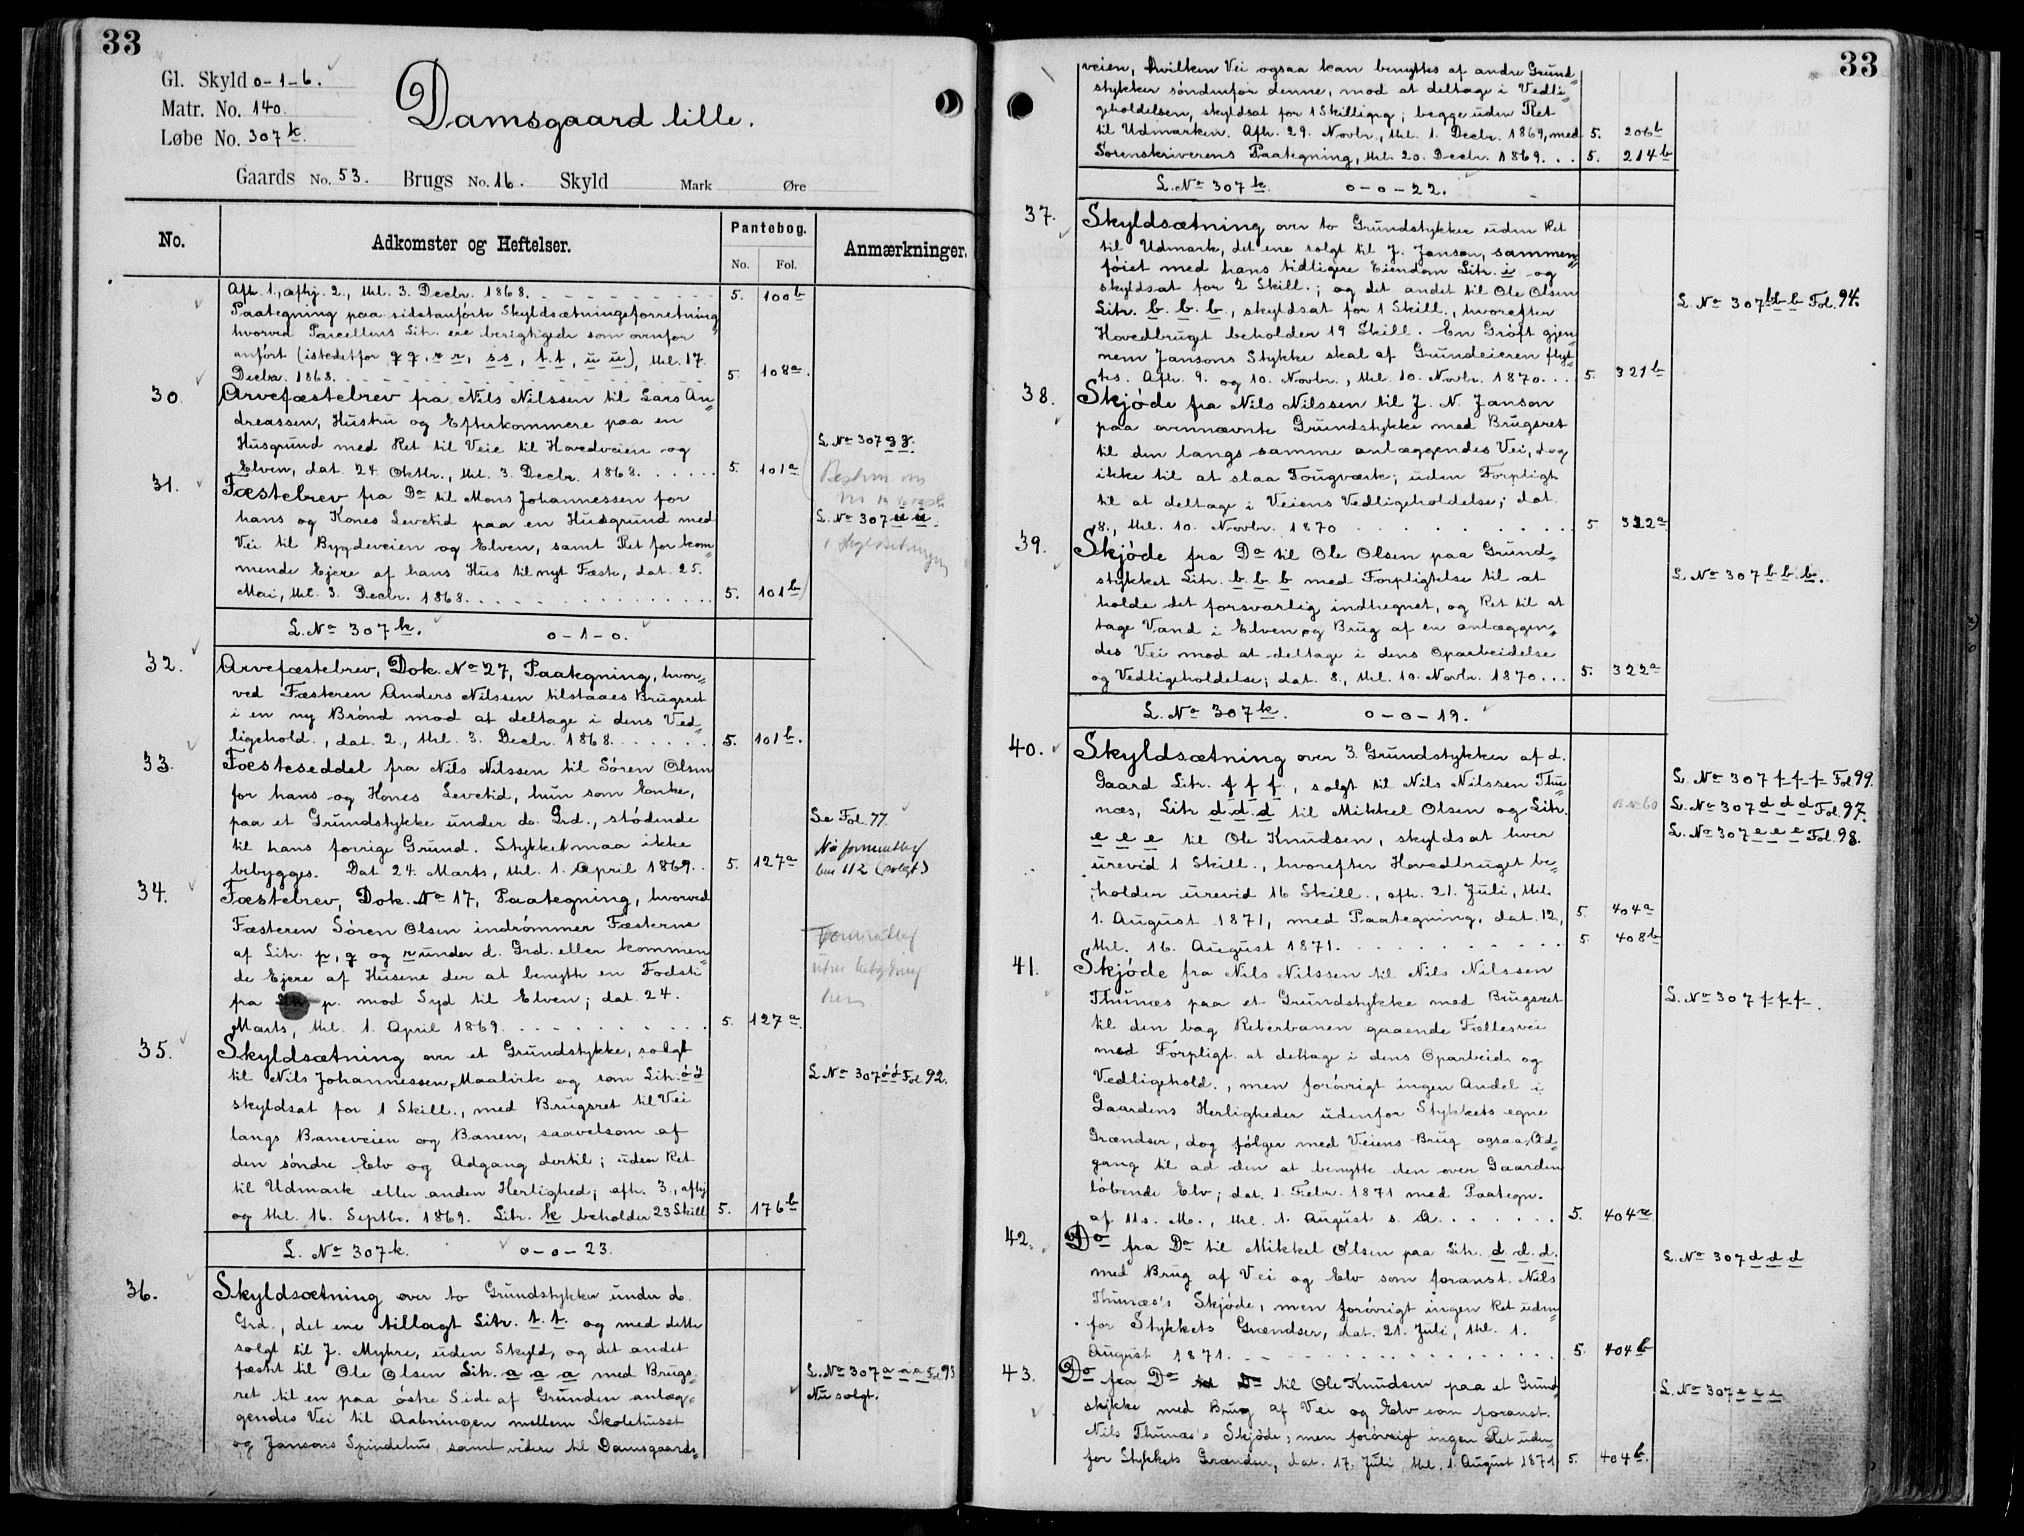 33
Gl. Skyld 0-1-6.
Matr. No. 140.
Løbe No. 307 k.
Damsgaard lille.
Gaards No. 53. Brugs No. 16. Skyld Mark Øre
No. Adkomster og Heftelser. Pantebog. Anmærkninger.
No. Fol.
Afh. 1., afhj. 2., thl. 3. Decbr. 1868. 5. 100b
Paategning paa sidstanförte Skyldsætningsforretning
hvorved Parcellens Litr. ere berigtigede som ovenfor
anfört (istedetfor q q, r r, s s, t t, u u), thl. 17.
Decbr. 1868. 5. 108a.
30. Arvefæstebrev fra Nils Nilssen til Lars An-
dreassen, Hustru og Efterkommere paa en
Husgrund med Ret til Veie til Hovedveien og L. No 307 q q.
Elven, dat. 24. Oktbr., thl. 3. Decbr. 1868. 5. 101a
31. Fæstebrev fra Do til Mons Johannessen for
hans og Kones Levetid paa en Husgrund med L. No 307 u u.
Vei til Bygdeveien og Elven, samt Ret for kom-
mende Ejere af hans Hus til nyt Fæste, dat. 25.
Mai, thl. 3. Decbr. 1868. 5. 101b
L. No 307 k. 0-1-0.
32. Arvefæstebrev, Dok. No 27, Paategning, hvor-
ved Fæsteren Anders Nilssen tilstaaes Brugsret
i en ny Brönd mod at deltage i dens Ved-
ligehold., dat. 2., thl. 3. Decbr. 1868. 5. 101b.
33. Fæsteseddel fra Nils Nilssen til Sören Olsen
for hans og Kones Levetid, hun som Enke,
paa et Grundstykke under d. Grd., stödende Se Fol. 77.
til hans forrige Grund. Stykket maa ikke
bebygges. Dat. 24. Marts, thl. 1. April 1869. 5. 127a
34. Fæstebrev, Dok. No 17, Paategning, hvorved
Fæsteren Sören Olsen indrömmer Fæsterne
af Litr. p, q og r under d. Grd. eller kommen-
de Ejere af Husene der at benytte en Fodsti
fra p. mod Syd til Elven; dat. 24.
Marts, thl. 1. April 1869. 5. 127a.
35. Skyldsætning over et Grundstykke, solgt
til Nils Johannessen Maalvik og som Litr. ö ö L. No 307 ö ö Fol 92.
skyldsat for 1 Skill., med Brugsret til Vei
langs Baneveien og Banen, saavelsom af
den söndre Elv og Adgang dertil; uden Ret
til Udmark eller anden Herlighed; afh. 3., afhj.
og thl. 16. Septbr. 1869. Litr. k beholder 23 Skill. 5. 176b
L. No 307 k. 0-0-23.
36. Skyldsætning over to Grundstykker under d.
Grd., det ene tillagt Litr. t. t. og med dette
solgt til J. Myhre, uden Skyld, og det andet
fæstet til Ole Olsen Litr. a a a med Brugs- L. No 307 a a a Fol. 93
ret til en paa östre Side af Grunden anlæg- Nu solgt.
gendes Vei til Aabningen mellem Skolehuset
og Jansons Spindehus, samt videre til Damsgaards-
33
veien, hvilken Vei ogsaa kan benyttes af andre Grund-
stykker söndenfor denne, mod at deltage i Vedli-
geholdelsen, skyldsat for 1 Skilling; begge uden Ret
til Udmarken. Afh. 29. Novbr., thl. 1. Decbr. 1869, med 5. 206b
Sorenskriverens Paategning, thl. 20. Decbr. 1869. 5. 214b
L. No 307 k. 0-0-22.
37. Skyldsætning over to Grundstykker uden Ret
til Udmark, det ene solgt til J. Janson, sammen-
föiet med hans tidligere Eiendom Litr. i og
skyldsat for 2 Skill.; og det andet til Ole Olsen L. No 307 b b b Fol. 94.
Litr. b. b. b., skyldsat for 1 Skill., hvorefter
Hovedbruget beholder 19 Skill. En Gröft gjen-
nem Jansons Stykke skal af Grundeieren flyt-
tes. Afh. 9. og 10. Novbr., thl. 10. Novbr. 1870. 5. 321b
38. Skjöde fra Nils Nilssen til J. N. Janson
paa ovennævnte Grundstykke med Brugsret
til den langs samme anlæggendes Vei, dog
ikke til at slaa Tougværk; uden Forpligt
til at deltage i Veiens Vedligeholdelse; dat.
8., thl. 10. Novbr. 1870 5 322a
39. Skjöde fra Do til Ole Olsen paa Grund-
stykket Litr. b b b med Forpligtelse til at L. No 307 b b b.
holde det forsvarlig indhegnet, og Ret til at
tage Vand i Elven og Brug af en anlæggen-
des Vei mod at deltage i dens Oparbeidelse
og Vedligeholdelse; dat. 8., thl. 10. Novbr. 1870. 5. 322a
L. No 307 k. 0-0-19.
40. Skyldsætning over 3 Grundstykker af d.
Gaard Litr. f f f, solgt til Nils Nilssen Thu- L. No 307 f f f Fol 99.
næs, Litr d. d. d til Mikkel Olsen og Litr. L. No 307 d d d Fol. 97.
e e e til Ole Knudsen, skyldsat hver L. No 307 e e e Fol. 98.
urevid 1 Skill., hvorefter Hovedbruget be-
holder urevid 16 Skill., afh. 21. Juli, thl.
1. August 1871, med Paategning, dat. 12., 5. 404a
thl. 16. August 1871. 5. 408b
41. Skjöde fra Nils Nilssen til Nils Nilssen
Thunæs paa et Grundstykke med Brugsret L. No 307 f f f.
til den bag Reberbanen gaaende Fællesvei
med Forpligt. at deltage i dens Oparbeid. og
Vedligehold., men forövrigt ingen Andel i
Gaardens Herligheder udenfor Stykkets egne
Grændser, dog fölger med Veiens Brug ogsaa Ad-
gang til ad den at benytte den over Gaarden
löbende Elv; dat. 1. Febr. 1871 med Paategn.
af 11 s. M., thl. 1. August s. A. 5. 404a
42. Do fra Do til Mikkel Olsen paa Litr. d. d. d. L. No 307 d d d
med Brug af Vei og Elv som foranst. Nils
Thunæs's Skjöde, men forövrigt ingen Ret uden-
for Stykkets Grændser, dat. 21. Juli, thl. 1.
August 1871. 5. 404b
43. Do fra Do til Ole Knudsen paa et Grund- L. No 307 e e e
stykke med Brug af Vei og Elv som foranst.
Nils Thunæs's Skjöde, men forövrigt ingen Ret uden-
for Stykkets Grændser, dat. 17. Juli, thl. 1. August 1871 5. 404b.